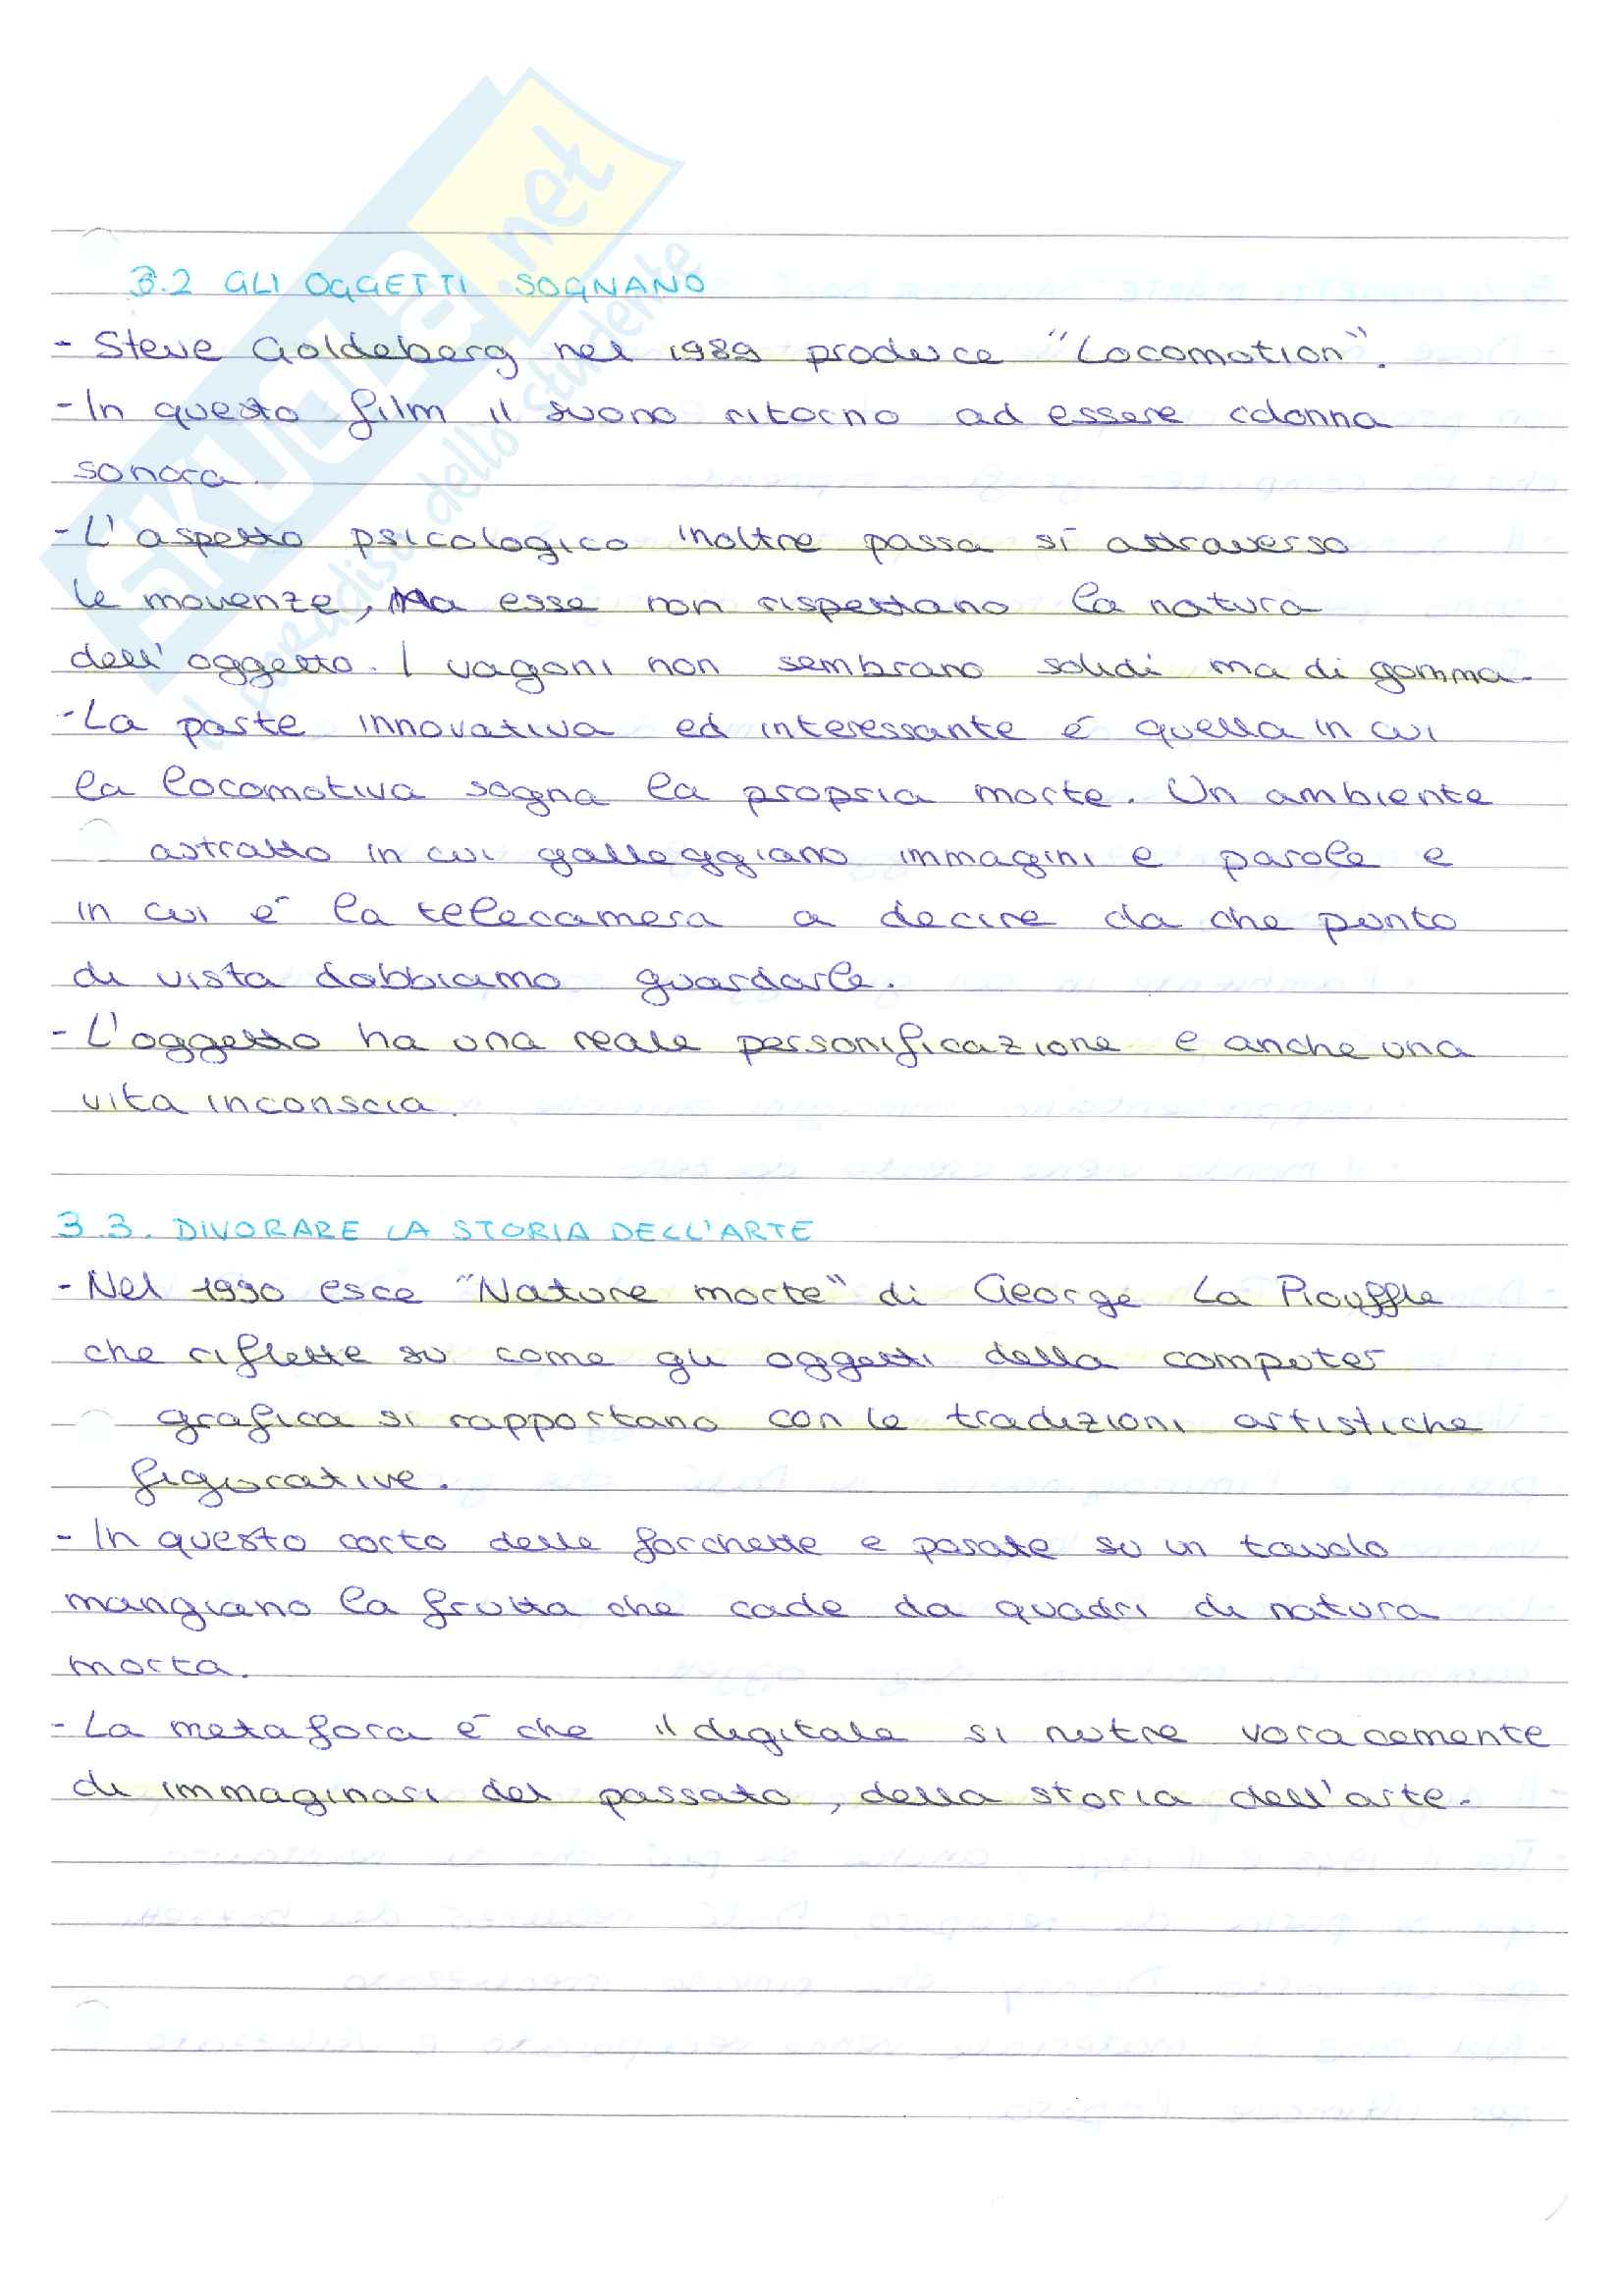 SKUOLA.net
il paradiso dello studente
3.2 GLI OGGETTI SOGNANO
- Steve Goldeberg nel 1989 produce "Locomotion".
- In questo film il suono ritorno ad essere colonna
sonora.
- L'aspetto psicologico inoltre passa sì attraverso
le movenze, Ma esse non rispettano la natura
dell'oggetto. I vagoni non sembrano solidi ma di gomma.
- La parte innovativa ed interessante è quella in cui
la locomotiva sogna la propria morte. Un ambiente
astratto in cui galleggiano immagini e parole e
in cui è la telecamera a decire da che punto
di vista dobbiamo guardarle.
- L'oggetto ha una reale personificazione e anche una
vita inconscia.
3.3. DIVORARE LA STORIA DELL'ARTE
- Nel 1990 esce "Nature morte" di George La Piouffle
che riflette su come gli oggetti della computer
grafica si rapportano con le tradizioni artistiche
figurative.
- In questo corto delle forchette e posate su un tavolo
mangiano la frutta che cade da quadri di natura
morta.
- La metafora è che il digitale si nutre voracemente
di immaginari del passato, della storia dell'arte.